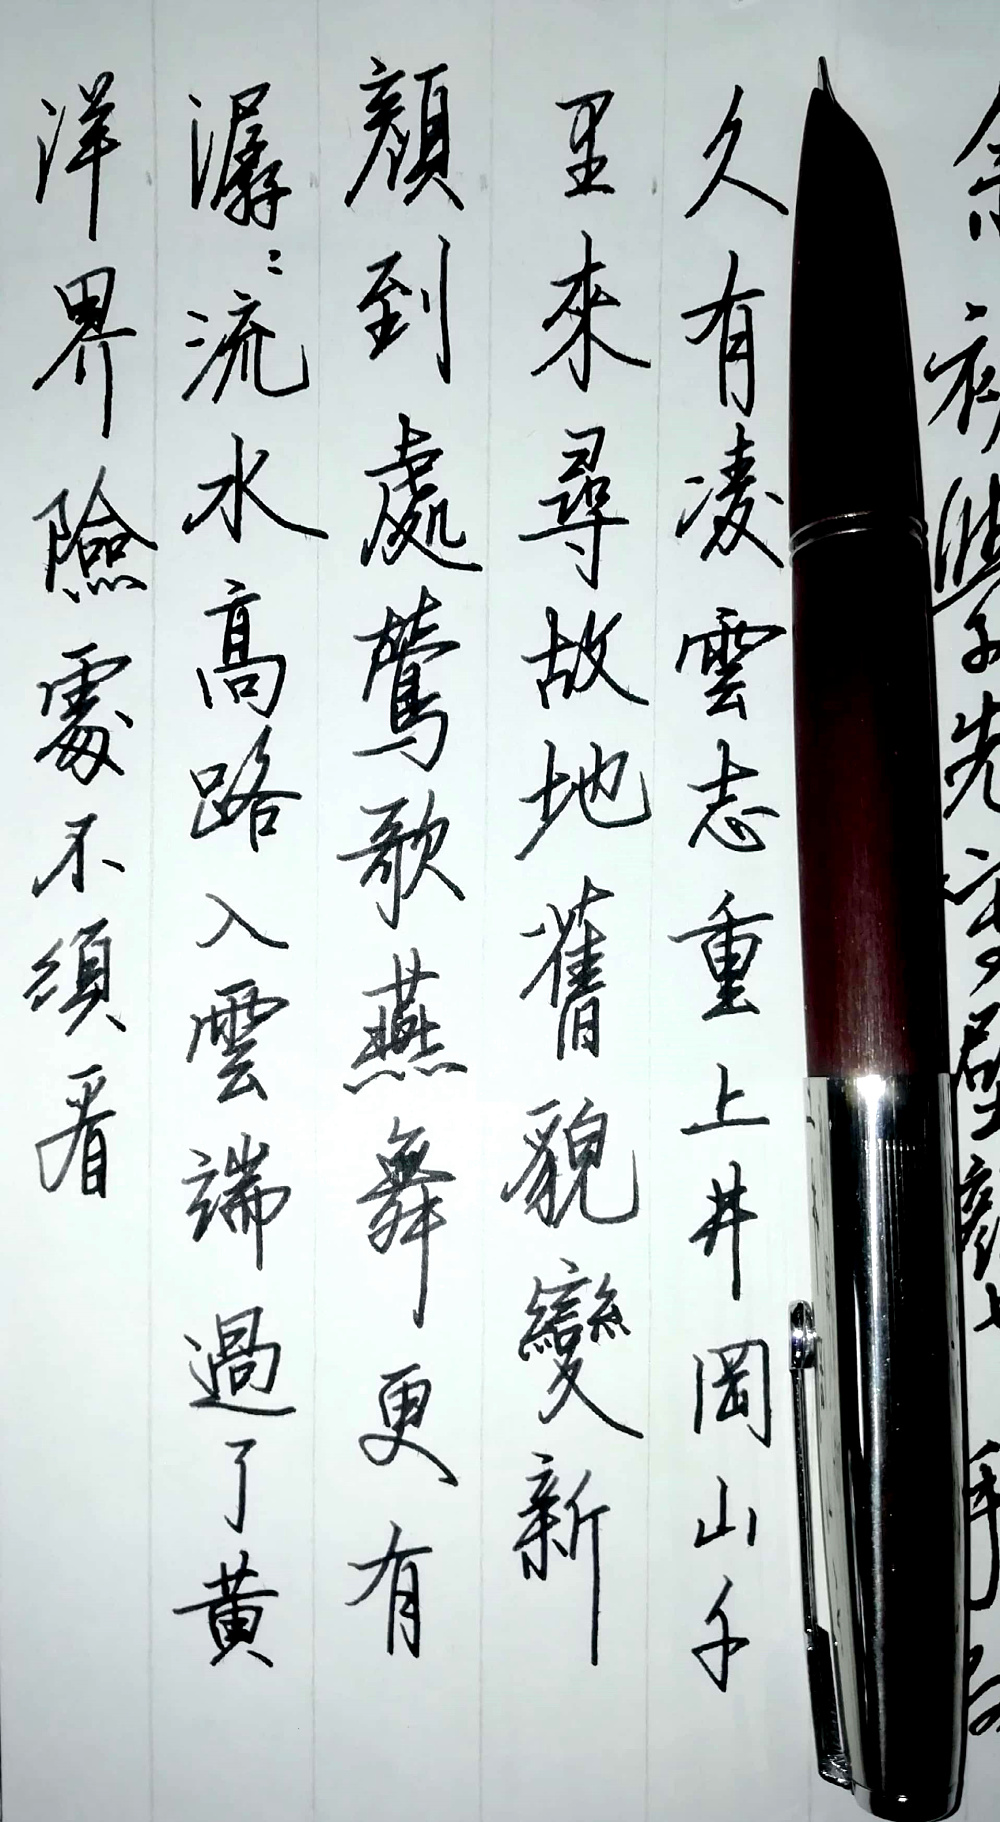 久有凌雲志重上井岡山千
里來尋故地舊貌變新
顏到處鶯歌燕舞更有
潺〻流水高路入雲端過了黃
洋界險處不須看